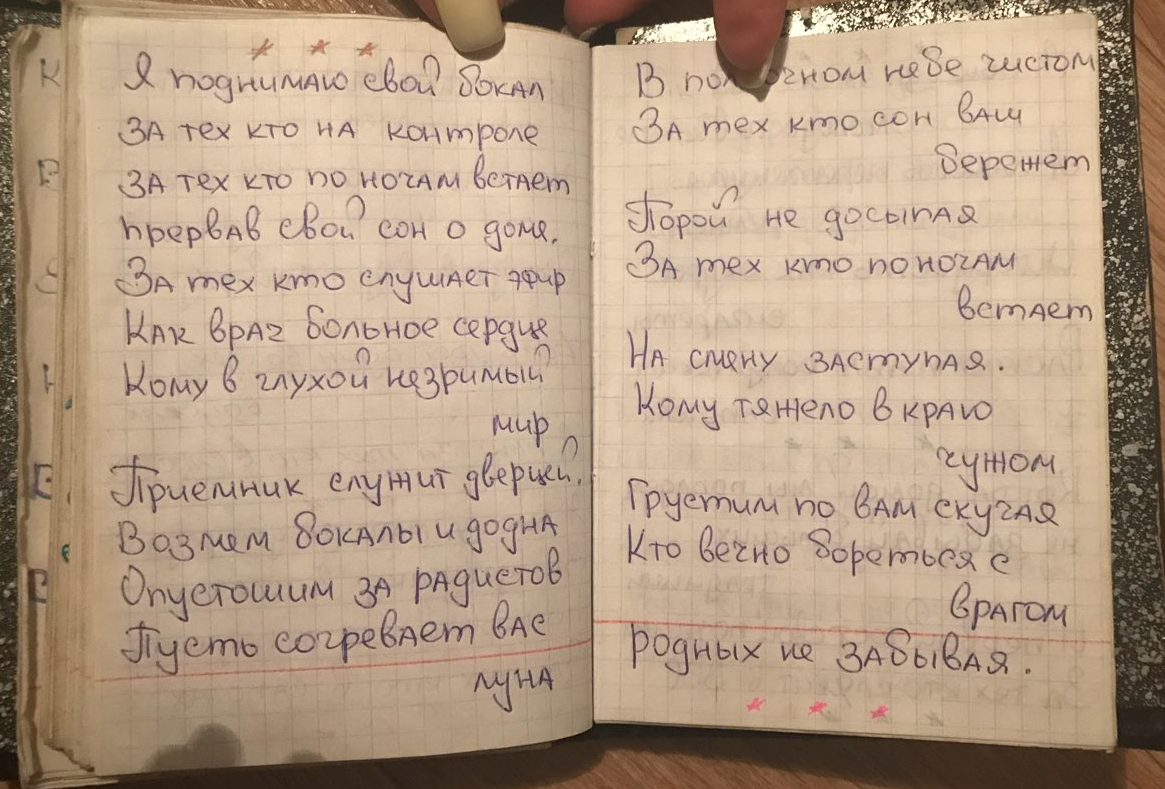 * * *
Я поднимаю свой бокал
За тех кто на контроле
За тех кто по ночам встает
Прервав свой сон о доме.
За тех кто слушает эфир
Как врач больное сердце
Кому в глухой незримый
мир
Приемник служит дверцей.
Возмем бокалы и додна
Опустошим за радистов
Пусть согревает вас
луна
В небе чистом
За тех кто сон ваш
бережет
Порой не досыпая
За тех кто по ночам
встает
На смену заступая.
Кому тяжело в краю
чужом
Грустим по вам скучая
Кто вечно бореться с
врагом
родных не забывая.
* * *